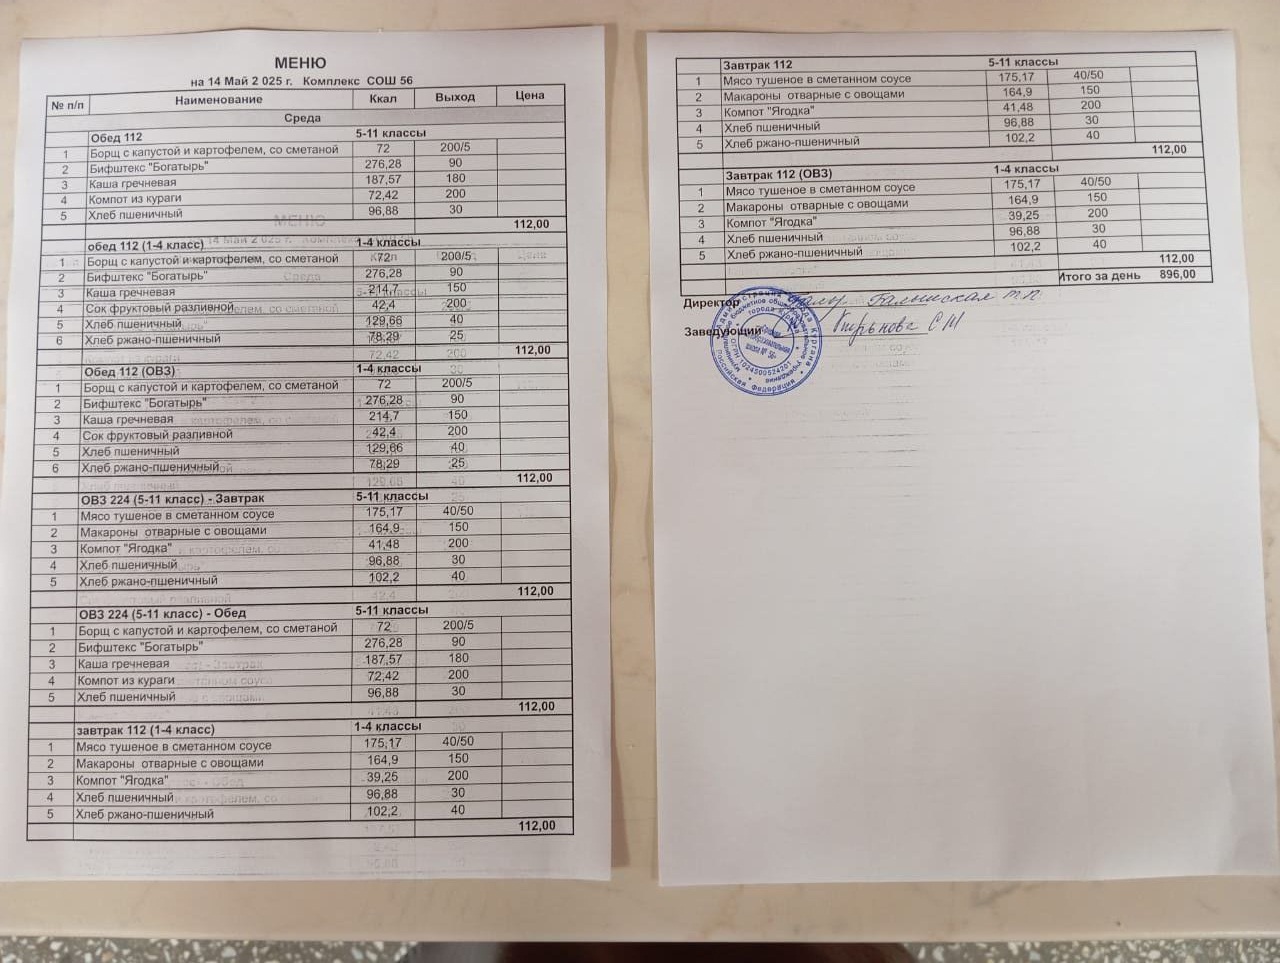 МЕНЮ
на 14 Май 2 025 г. Комплекс СОШ 56
№ п/п Наименование Ккал Выход Цена
Среда
Обед 112 5-11 классы
1 Борщ с капустой и картофелем, со сметаной 72 200/5
2 Бифштекс "Богатырь" 276,28 90
3 Каша гречневая 187,57 180
4 Компот из кураги 72,42 200
5 Хлеб пшеничный 96,88 30
112,00
обед 112 (1-4 класс) 1-4 классы
1 Борщ с капустой и картофелем, со сметаной 72 200/5
2 Бифштекс "Богатырь" 276,28 90
3 Каша гречневая 214,7 150
4 Сок фруктовый разливной 42,4 200
5 Хлеб пшеничный 129,66 40
6 Хлеб ржано-пшеничный 78,29 25
112,00
Обед 112 (ОВЗ) 1-4 классы
1 Борщ с капустой и картофелем, со сметаной 72 200/5
2 Бифштекс "Богатырь" 276,28 90
3 Каша гречневая 214,7 150
4 Сок фруктовый разливной 42,4 200
5 Хлеб пшеничный 129,66 40
6 Хлеб ржано-пшеничный 78,29 25
112,00
ОВЗ 224 (5-11 класс) - Завтрак 5-11 классы
1 Мясо тушеное в сметанном соусе 175,17 40/50
2 Макароны отварные с овощами 164,9 150
3 Компот "Ягодка" 41,48 200
4 Хлеб пшеничный 96,88 30
5 Хлеб ржано-пшеничный 102,2 40
112,00
ОВЗ 224 (5-11 класс) - Обед 5-11 классы
1 Борщ с капустой и картофелем, со сметаной 72 200/5
2 Бифштекс "Богатырь" 276,28 90
3 Каша гречневая 187,57 180
4 Компот из кураги 72,42 200
5 Хлеб пшеничный 96,88 30
112,00
завтрак 112 (1-4 класс) 1-4 классы
1 Мясо тушеное в сметанном соусе 175,17 40/50
2 Макароны отварные с овощами 164,9 150
3 Компот "Ягодка" 39,25 200
4 Хлеб пшеничный 96,88 30
5 Хлеб ржано-пшеничный 102,2 40
112,00
Завтрак 112 5-11 классы
1 Мясо тушеное в сметанном соусе 175,17 40/50
2 Макароны отварные с овощами 164,9 150
3 Компот "Ягодка" 41,48 200
4 Хлеб пшеничный 96,88 30
5 Хлеб ржано-пшеничный 102,2 40
112,00
Завтрак 112 (ОВЗ) 1-4 классы
1 Мясо тушеное в сметанном соусе 175,17 40/50
2 Макароны отварные с овощами 164,9 150
3 Компот "Ягодка" 39,25 200
4 Хлеб пшеничный 96,88 30
5 Хлеб ржано-пшеничный 102,2 40
112,00
Итого за день 896,00
Директор
Заведующий
Российская Федерация